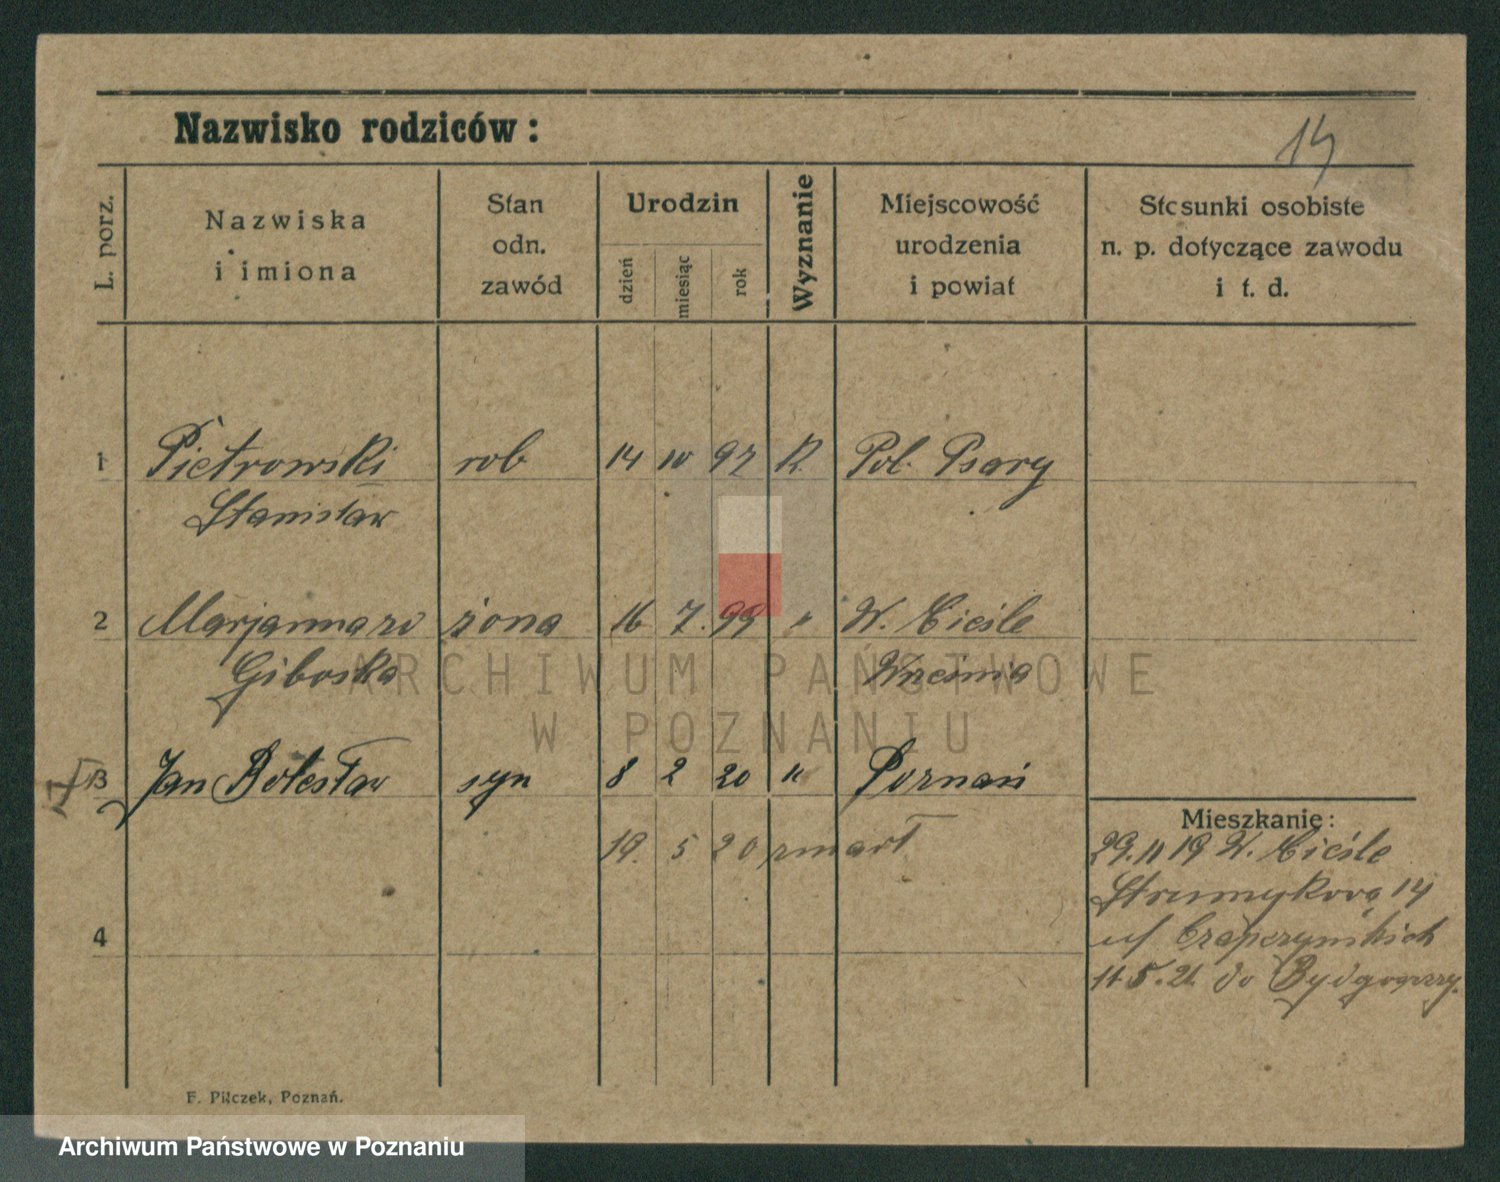 Nazwisko rodziców:
14
L. porz.
Nazwiska
i imiona
Stan
odn.
zawód
Urodzin
dzień
miesiąc
rok
Wyznanie
Miejscowość
urodzenia
i powiat
Stosunki osobiste
n. p. dotyczące zawodu
i t. d.
1 Pietrowski rob 14 10 97 K. Psary
Stanisław
2 Marjanna zd żona 16 7. 99 " W. Cieśle
Giboska Września
3 Jan Bolesław syn 8 2 20 " Poznań
19. 5 20 zmarł
4
Mieszkanie:
29. 11 19 W. Cieśle
Strumykova 14
u/ Czapczyńskich
11. 5. 21. do Bydgoszczy.
F. Pilczek, Poznań.
ARCHIWUM PAŃSTWOWE
W POZNANIU
Archiwum Państwowe w Poznaniu